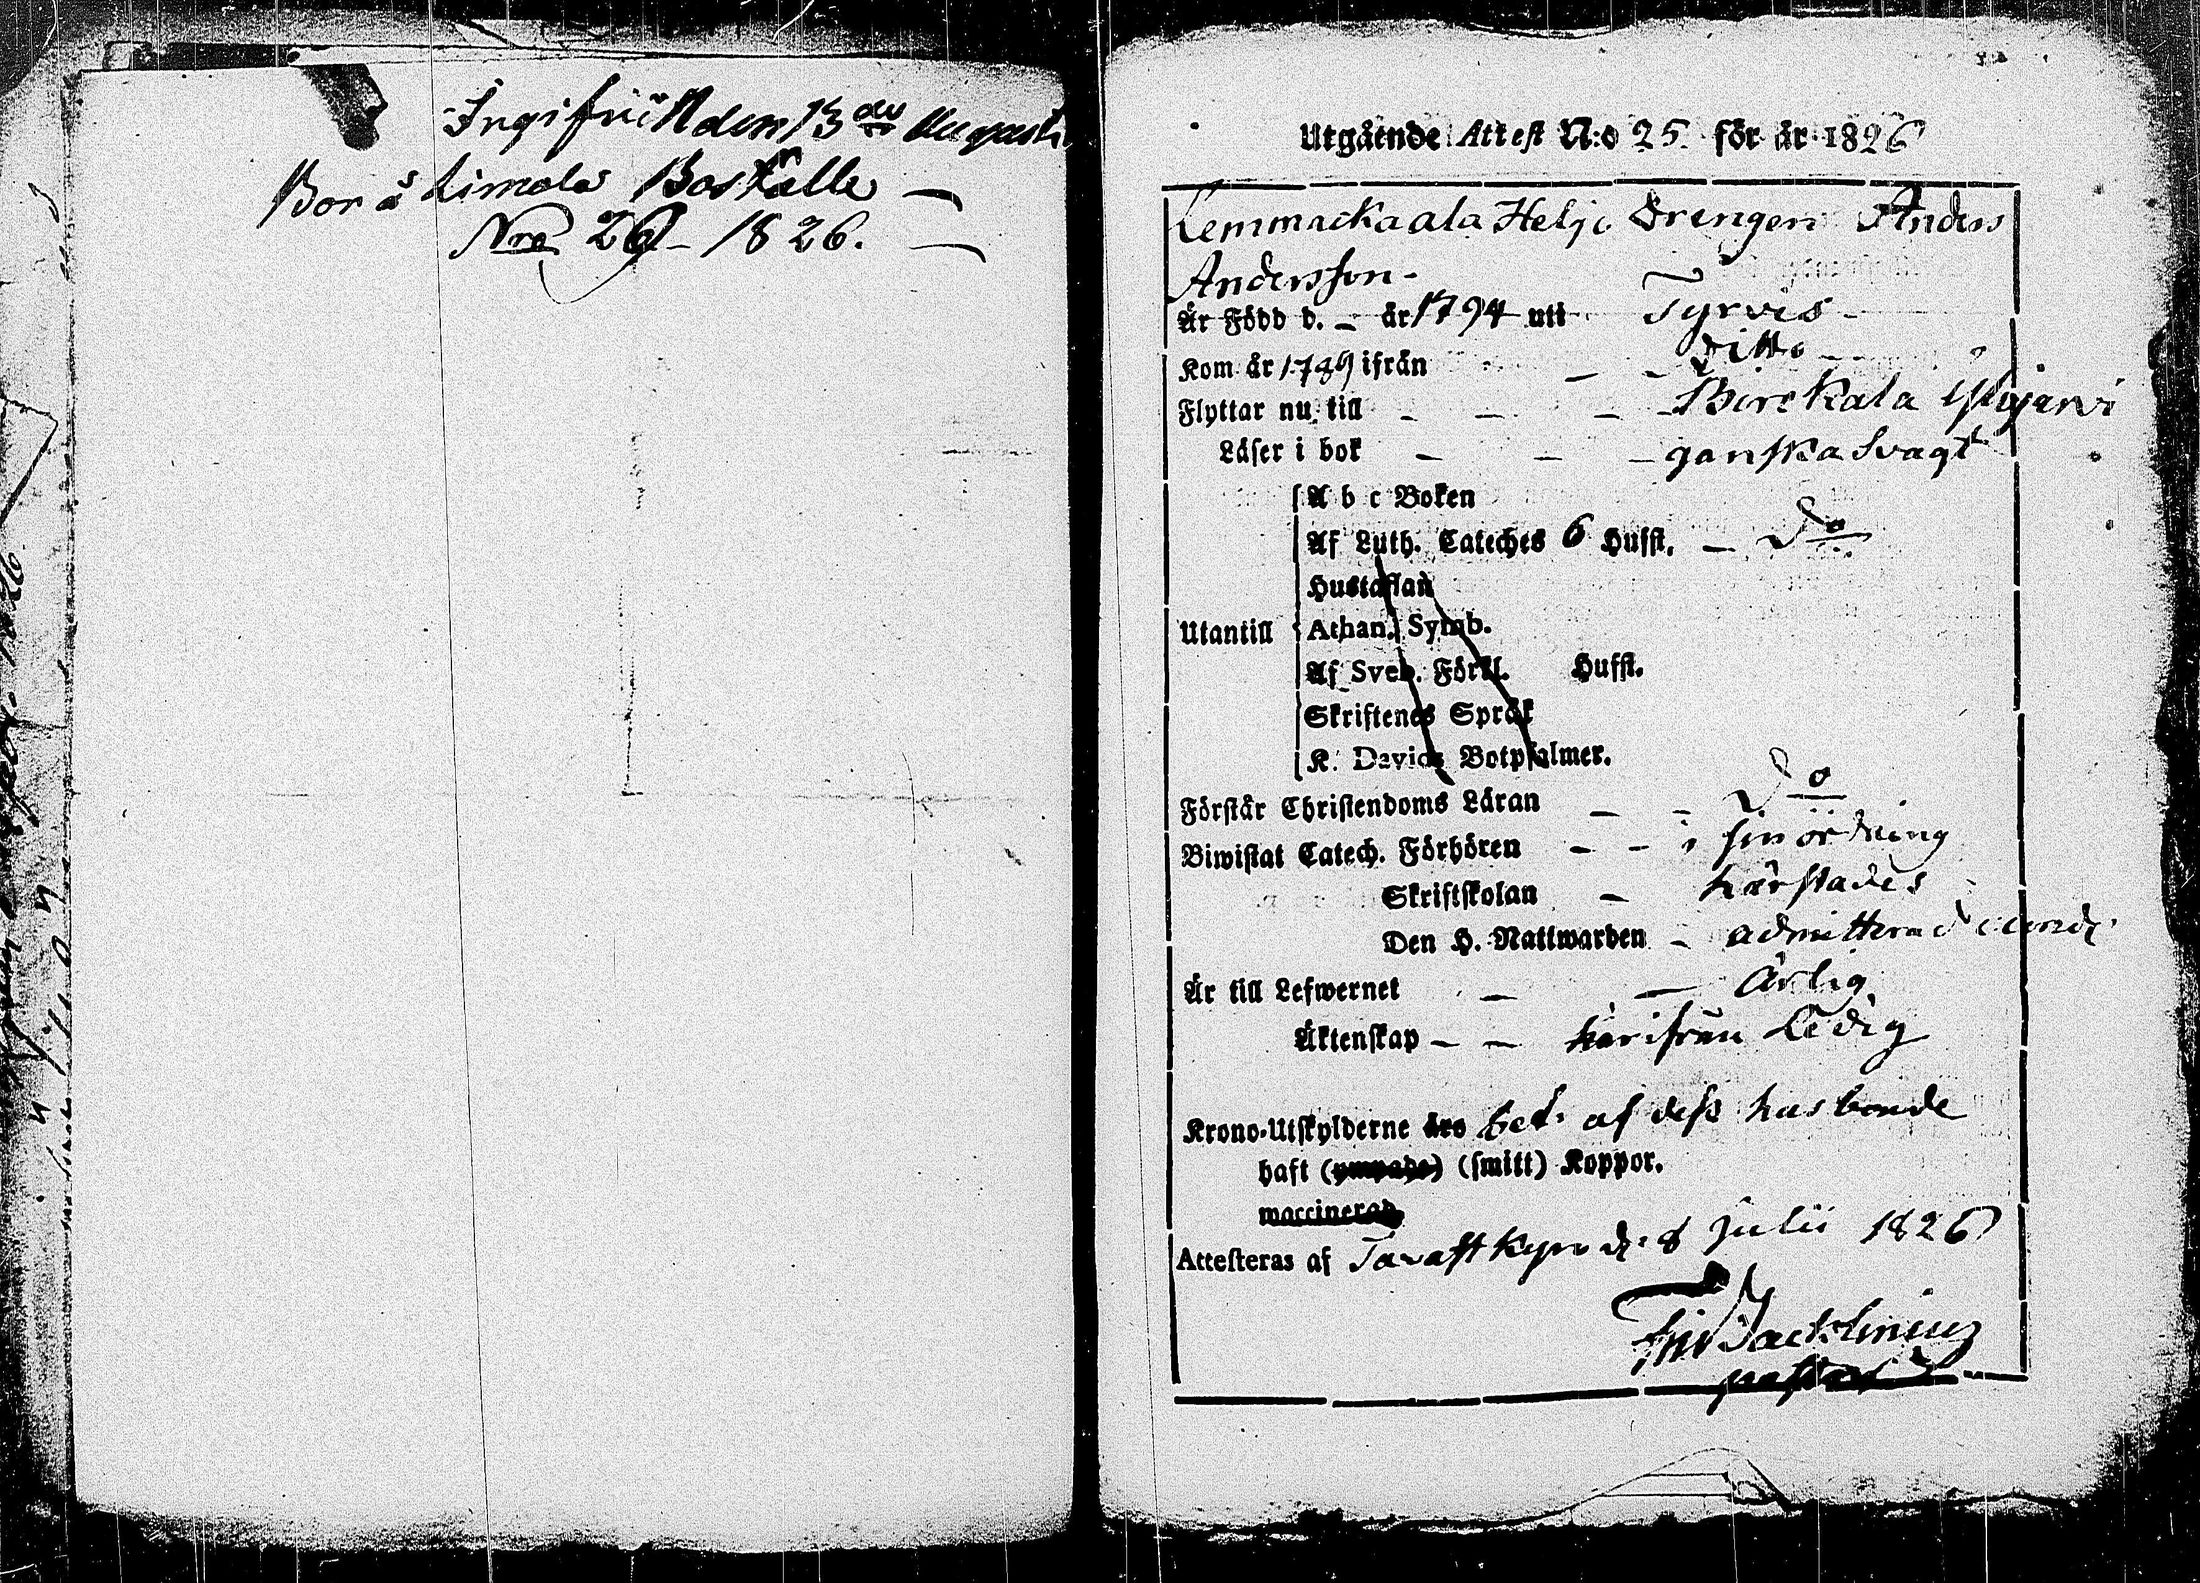 den 13 de Augusti
Bor å Limola Boställe
Nro 29 1826.
Utgående Attest N:o 25 för år 1826
Helje Drengen Anders
Andersson
Är Född d. – år 1794 uti Tyrvis
Kom år ifrån – – Ditto
Flyttar nu till – – – Birckala Ylöjärvi
Läser i bok – – – ganska Svagt
A b c Boken
Af Luth. Cateches 6 Hufst. – Do
Hustaflan
Utantill Athan. Symb.
Af Sveb. Förkl. Hufst.
Skriftenes Språk
K. Davids Botpsalmer.
Förstår Christendoms Läran – – Do
Biwistat Catech. Förhören – – i sin ordning
Skriftskolan – härstädes
Den H. Nattwarden – admitterad
Är till Lefwernet – – Ärlig
Äktenskap – – härifrån Ledig
Krono-Utskylderne äro bet. af dess husbonde
haft (ympade) (smitt) Koppor.
waccinerad
Attesteras af Tavastkyro d. 8 Julii 1826